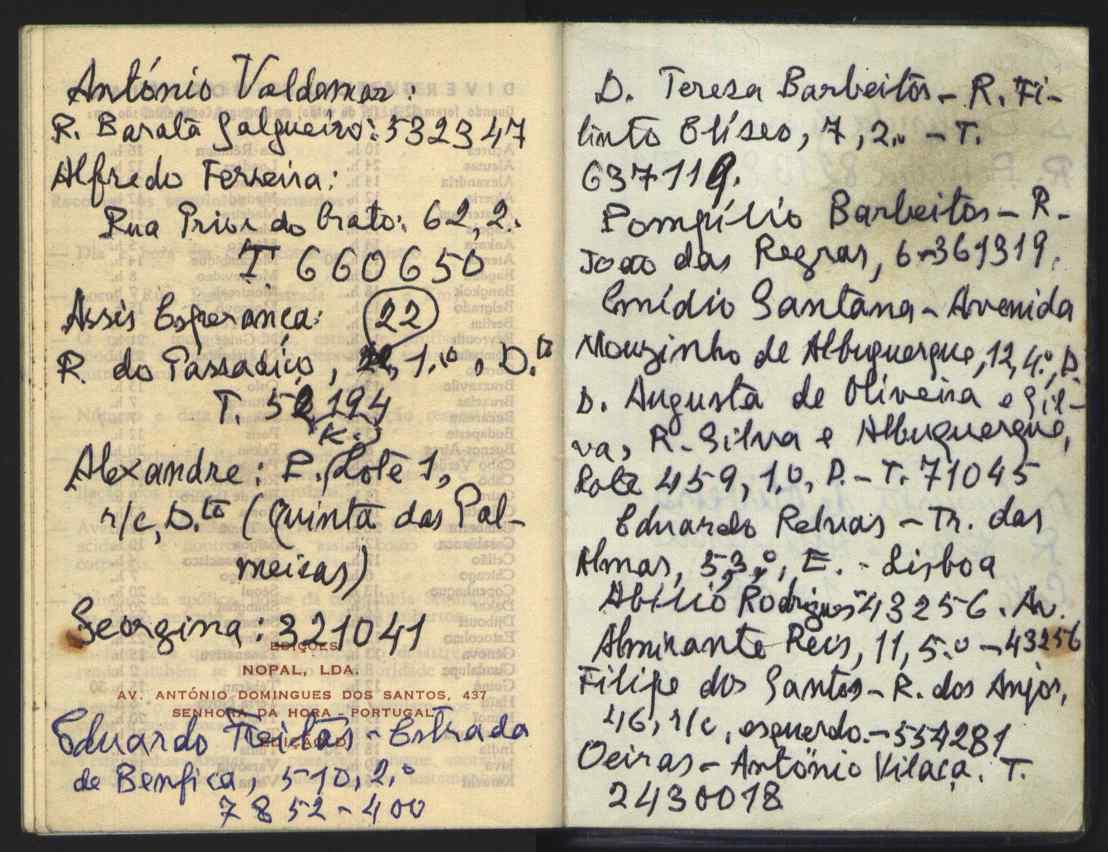 António Valdemar:
R. Barata Salgueiro: 532347
Alfredo Ferreira:
Rua Prior do Crato: 62, 2.
T 660650
Assis Esperança: 22
R. do Passadiço, 1.º, D.to
T. 52194
K.
Alexandre: P. Lote 1,
r/c, D.to (Quinta das Pal-
meiras)
Georgina: 321041
EDIÇÕES
NOPAL, LDA.
AV. ANTÓNIO DOMINGUES DOS SANTOS, 437
SENHORA DA HORA - PORTUGAL
Eduardo Freitas - Estrada
de Benfica, 510, 2.º
7852-400
D. Teresa Barbeitos - R. Fi-
linto Elíseo, 7, 2.º - T.
637119.
Pompílio Barbeitos - R.
João das Regras, 6-361319.
Emídio Santana - Avenida
Mouzinho de Albuquerque, 12, 4.º, D.
D. Augusta de Oliveira e Sil-
va, R. Silva e Albuquerque,
Lote 459, 1.º, D. - T. 71045
Eduardo Relvas - Tr. das
Almas, 5, 3.º, E. - Lisboa
Abílio Rodrigues 43256. Av.
Almirante Reis, 11, 5.º - 43256
Filipe dos Santos - R. dos Anjos,
46, r/c, esquerdo. - 554281
Oeiras - António Vilaça. T.
2430018